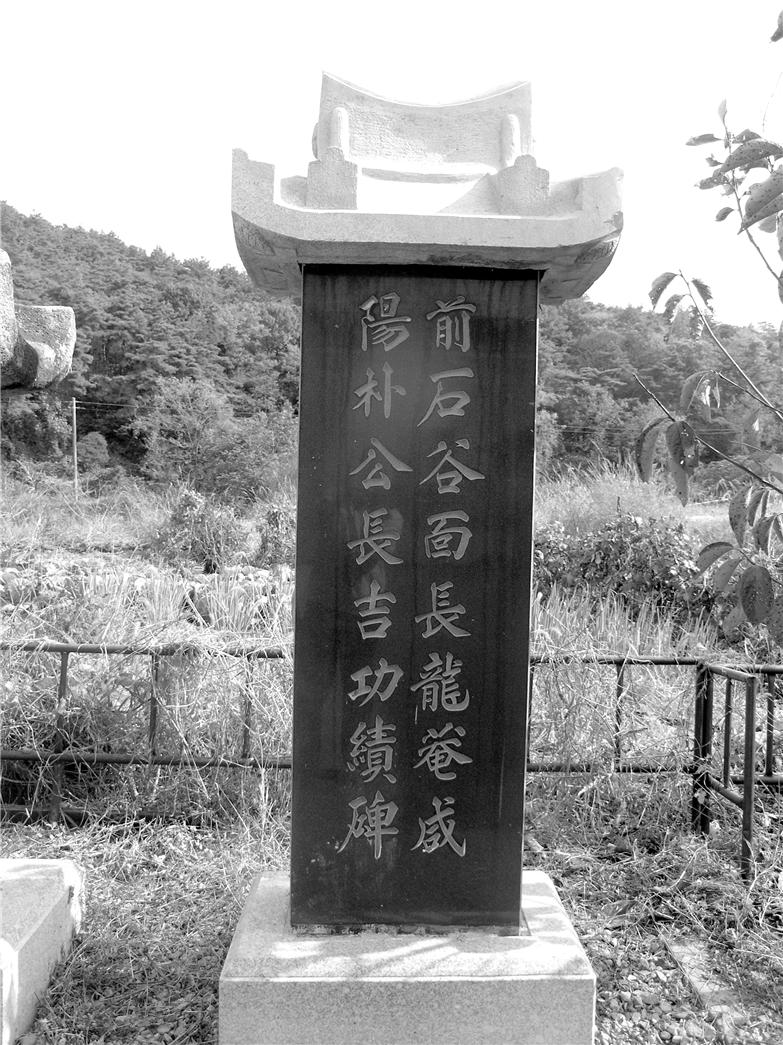 前石谷面長龍菴咸
陽朴公長吉功績碑